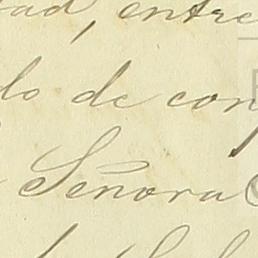 dad, entre
do de con
Señora